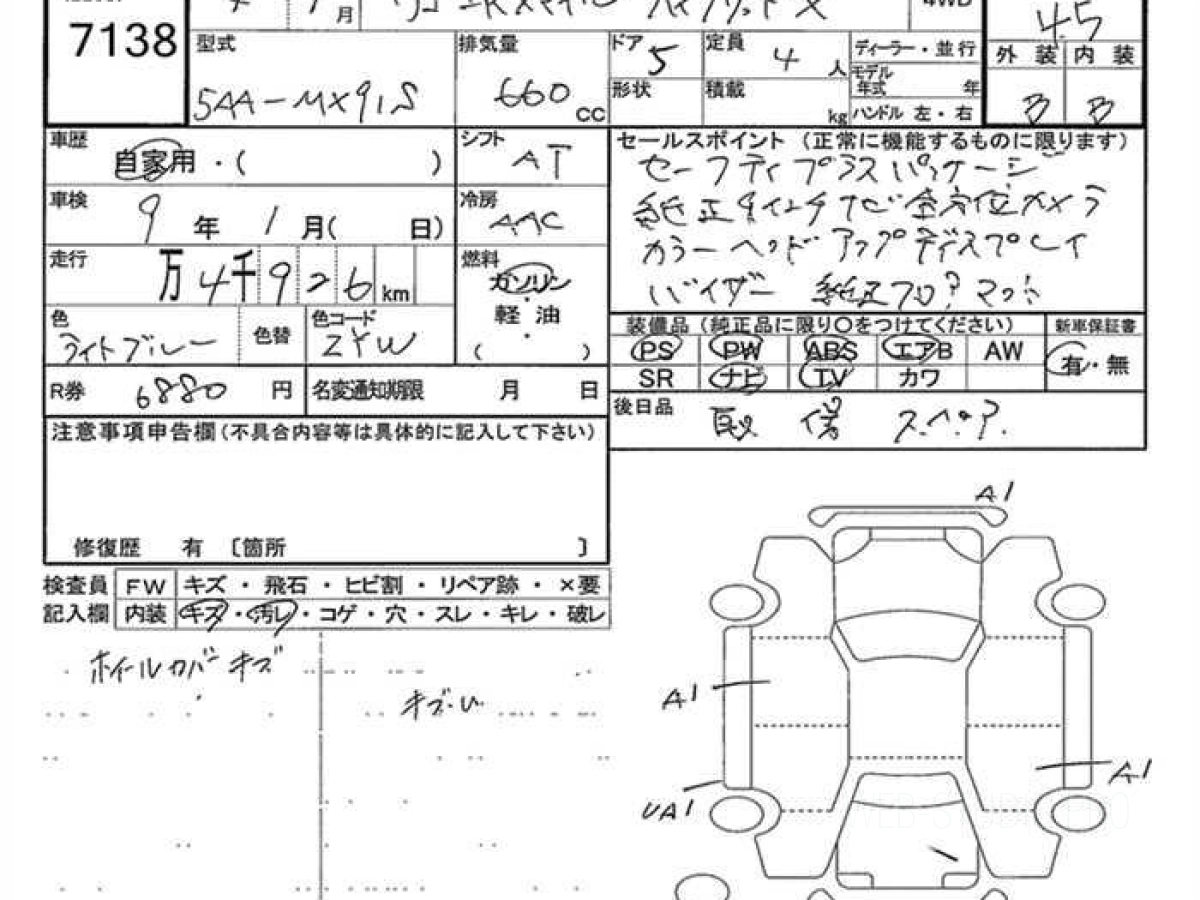 7138
月
ハイブリッド X
4WD
4.5
型式 5AA-MX91S
排気量 660 CC
ドア 5
定員 4 人
ディーラー・並行
モデル年式 年
形状
積載 kg
ハンドル 左・右
外装 内装
B B
車歴 自家用・( )
シフト AT
セールスポイント (正常に機能するものに限ります)
セーフティプラスパッケージ
純正9インチナビ全方位カメラ
カラーヘッドアップディスプレイ
バイザー 純正フロアマット
車検 9年 1月( 日)
冷房 AAC
走行 万4千926km
燃料 ガソリン・軽油・( )
色 ライトブルー
色替
色コード ZYW
装備品 (純正品に限り〇をつけてください)
新車保証書
PS PW ABS エアB AW
有・無
SR ナビ TV カワ
R券 6880 円
名変通知期限 月 日
後日品 取 保 スペア
注意事項申告欄(不具合内容等は具体的に記入して下さい)
修復歴 有 〔箇所 〕
検査員記入欄
FW キズ・飛石・ヒビ割・リペア跡・×要
内装 キズ・汚レ・コゲ・穴・スレ・キレ・破レ
ホイールカバーキズ
A1
A1
A1
UA1